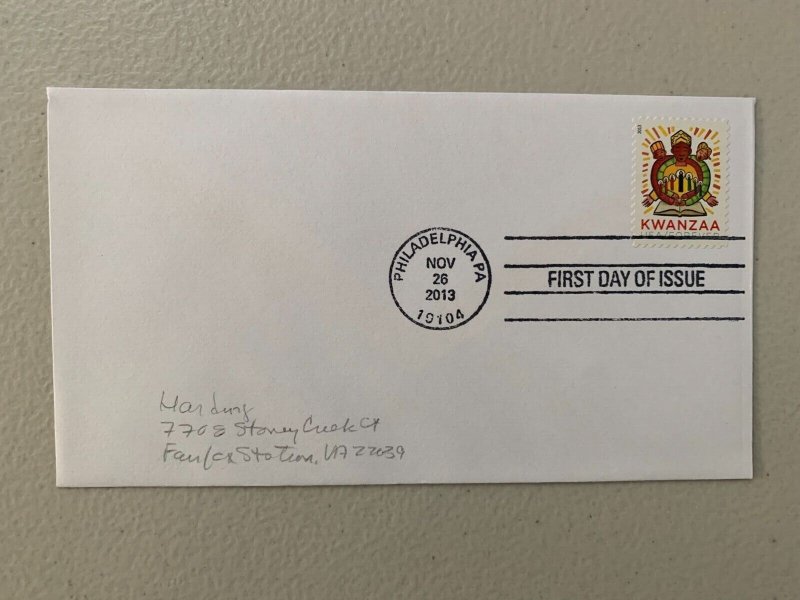 2013
KWANZAA
USA/FOREVER
PHILADELPHIA PA
NOV
26
2013
19104
FIRST DAY OF ISSUE
Harding
7708 Stoney Creek Ct
Fairfax Station, VA 22039